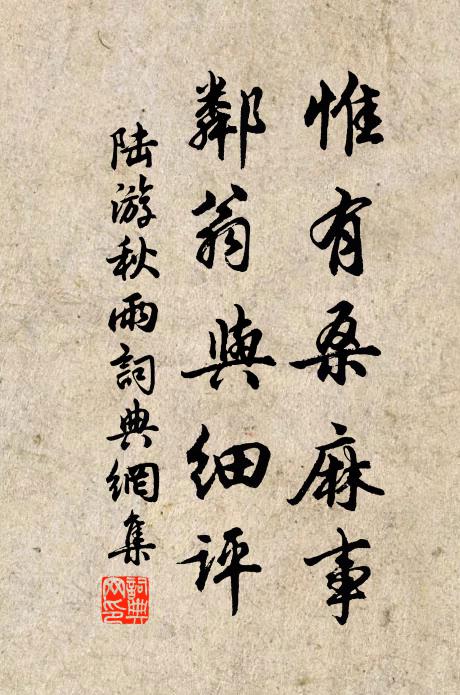 惟有桑麻事
鄰翁與細評
陸游秋雨詞典網集